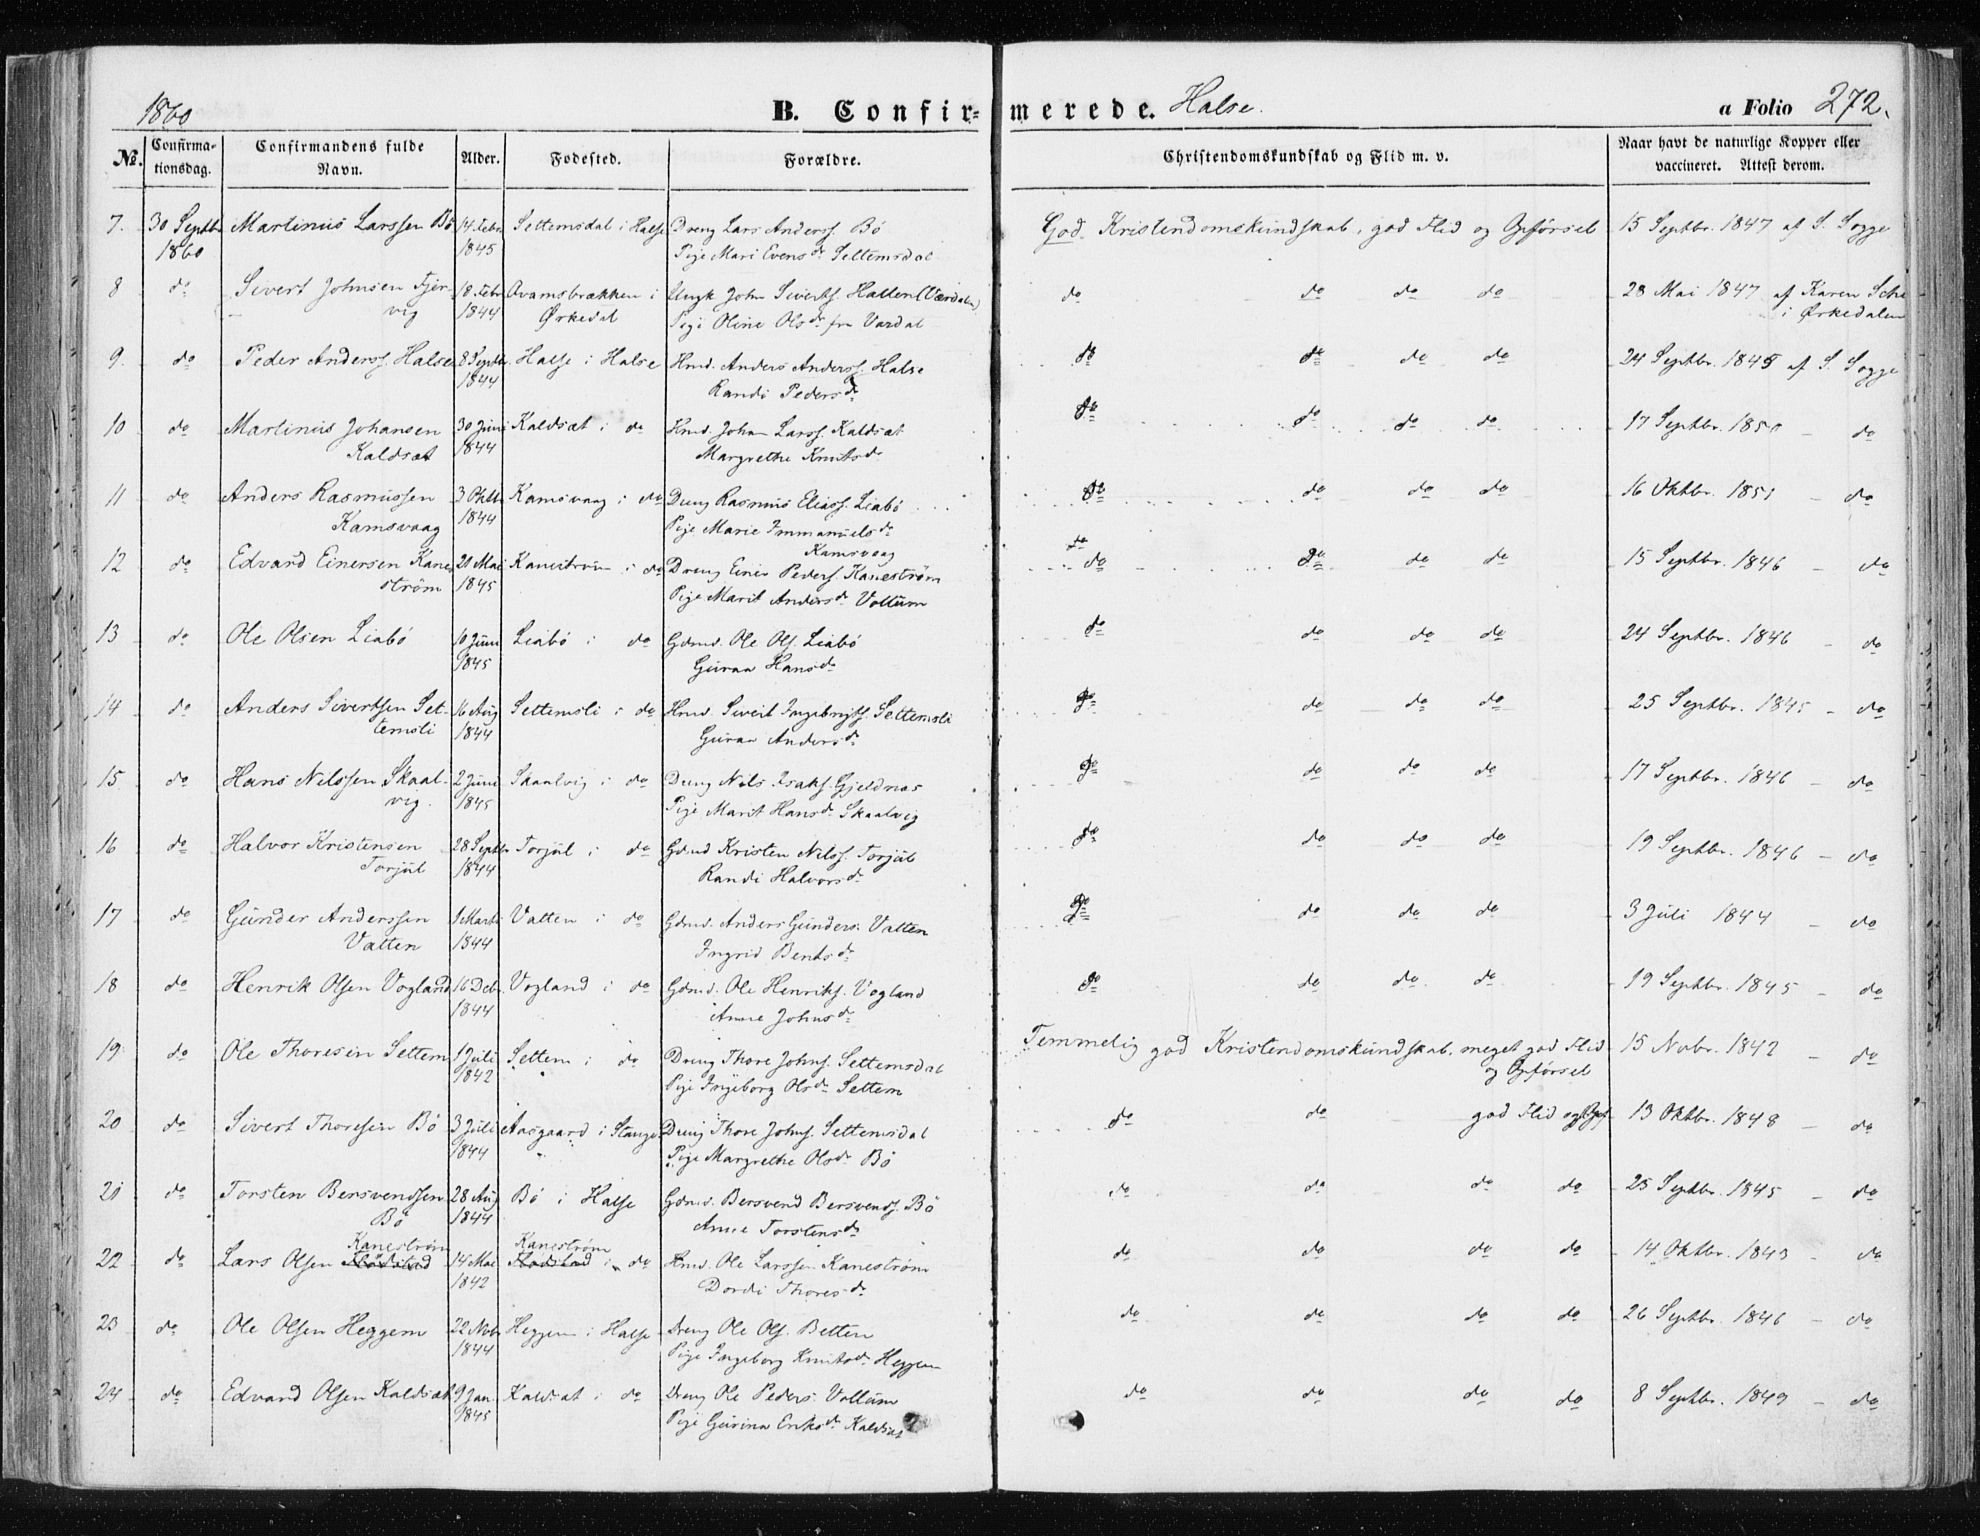 1860 B. Confir- merede. Halse. a Folio 272.
No. Confirma-tionsdag. Confirmandens fulde Navn. Alder. Fødested. Forældre. Christendomskundskab og Flid m. v. Naar havt de naturlige Kopper eller vaccineret. Attest derom.
7. 30 Septbr Martinus Larssen Bö 14 Febr Settemsdal i Halse Dreng Lars Anderss. Bö God Kristendomskundskab, god Flid og Opførsel 15 Septbr. 1847 af S. Sogge
1860 1845 Pige Mari Evensdr. Settemsdal
8 do Sivert Johnsen Fjer- 18 Febr Qvamsbrækken i Ungk John Sivertss. Hallen (Værdalen) do do do do 28 Mai 1847 af Karen
vig 1844 Ørkedal Pige Oline Olsdr fra Værdal i Ørkedalen
9. do Peder Anderss. Halse 8 Septbr. Halse i Halse Hmd. Anders Anderss. Halse do do do do 24 Septbr. 1845 af S. Sogge
1844 Randi Pedersdr
10 do Martinus Johansen 30 Juni Kaldsæt i do Hmd. Johan Larss. Kaldsæt do do do do 17 Septbr. 1850 - do
Kaldsæt 1844 Margrethe Knutsdr
11 do Anders Rasmussen 3 Oktbr Kamsvaag i do Dreng Rasmus Eliass. Liabö do do do do 16 Oktbr. 1851 - do
Kamsvaag 1844 Pige Marie Immanuelsdr
Kamsvaag
12 do Edvard Einersen Kane- 20 Mai Kanestrøm i do Dreng Einer Peders. Kanestrøm do do do do 15 Septbr. 1846 - do
strøm 1845 Pige Marit Andersdr Vollum
13 do Ole Olsen Liabö 10 Juni Liabö i do Gdmd. Ole Ols. Liabö do do do do 24 Septbr. 1846 - do
1845 Guraa Hansdr
14 do Anders Sivertsen Set- 16 Aug Settemsli i do Hmd. Sivert Ingebrigts. Settemsli do do do do 25 Septbr. 1845 - do
temsli 1844 Guraa Andersdr
15 do Hans Nilssen Skaal- 2 Juni Skaalvig i do Dreng Nils Isaks. Gjeldnæs do do do do 17 Septbr. 1846 - do
vig. 1845 Pige Marit Hansdr Skaalvig
16 do Halvor Kristensen 28 Septbr Torjul i do Gdmd Kristen Nilss. Torjul do do do do 19 Septbr. 1846 - do
Torjul 1844 Randi Halvorsdr
17 do Gunder Anderssen 1 Marts Valten i do Gdmd. Anders Gunders. Valten do do do do 3 Juli 1844 - do
Valten 1844 Ingrid Bentsdr
18 do Henrik Olsen Vogland 16 Debr. Vogland i do Gdmd. Ole Henriks. Vogland do do do do 19 Septbr. 1845 - do
1844 Anne Johnsdr
19 do Ole Thoresen Settem 1 Juli Settem i do Dreng Thore Johns. Settemsdal Temmelig god Kristendomskundskab, meget god Flid 15 Novbr. 1842 - do
1842 Pige Ingeborg Olsdr Settem og Opførsel
20 do Sivert Thoresen Bö 3 Juli Aasgaard i Stange Dreng Thore Johns. Settemsdal do do god Flid og Opf 13 Oktbr. 1848 - do
1844 Pige Margrethe Olsdr Bö
21 do Torsten Bersvendsen 28 Aug Bö i Halse Gdmd. Bersvend Bersvends. Bö do do do do 25 Septbr. 1845 - do
Bö 1844 Anne Torstensdr
Kanestrøm Kanestrøm
22 do Lars Olsen Flödstad 14 Mai Flödstad i do Hmd. Ole Larssen Kanestrøm do do do do 14 Oktbr. 1843 - do
1842 Dordi Thoresdr
23 do Ole Olsen Heggem 22 Nvbr Heggem i Halse Dreng Ole Ols. Betten do do do do 26 Septbr. 1846 - do
1844 Pige Ingeborg Knutsdr. Heggem
24 do Edvard Olsen Kaldsæt 9 Jan. Kaldsæt i do Dreng Ole Peders. Vollum do do do do 8 Septbr. 1849 - do
1845 Pige Gurina Eriksdr Kaldsæt